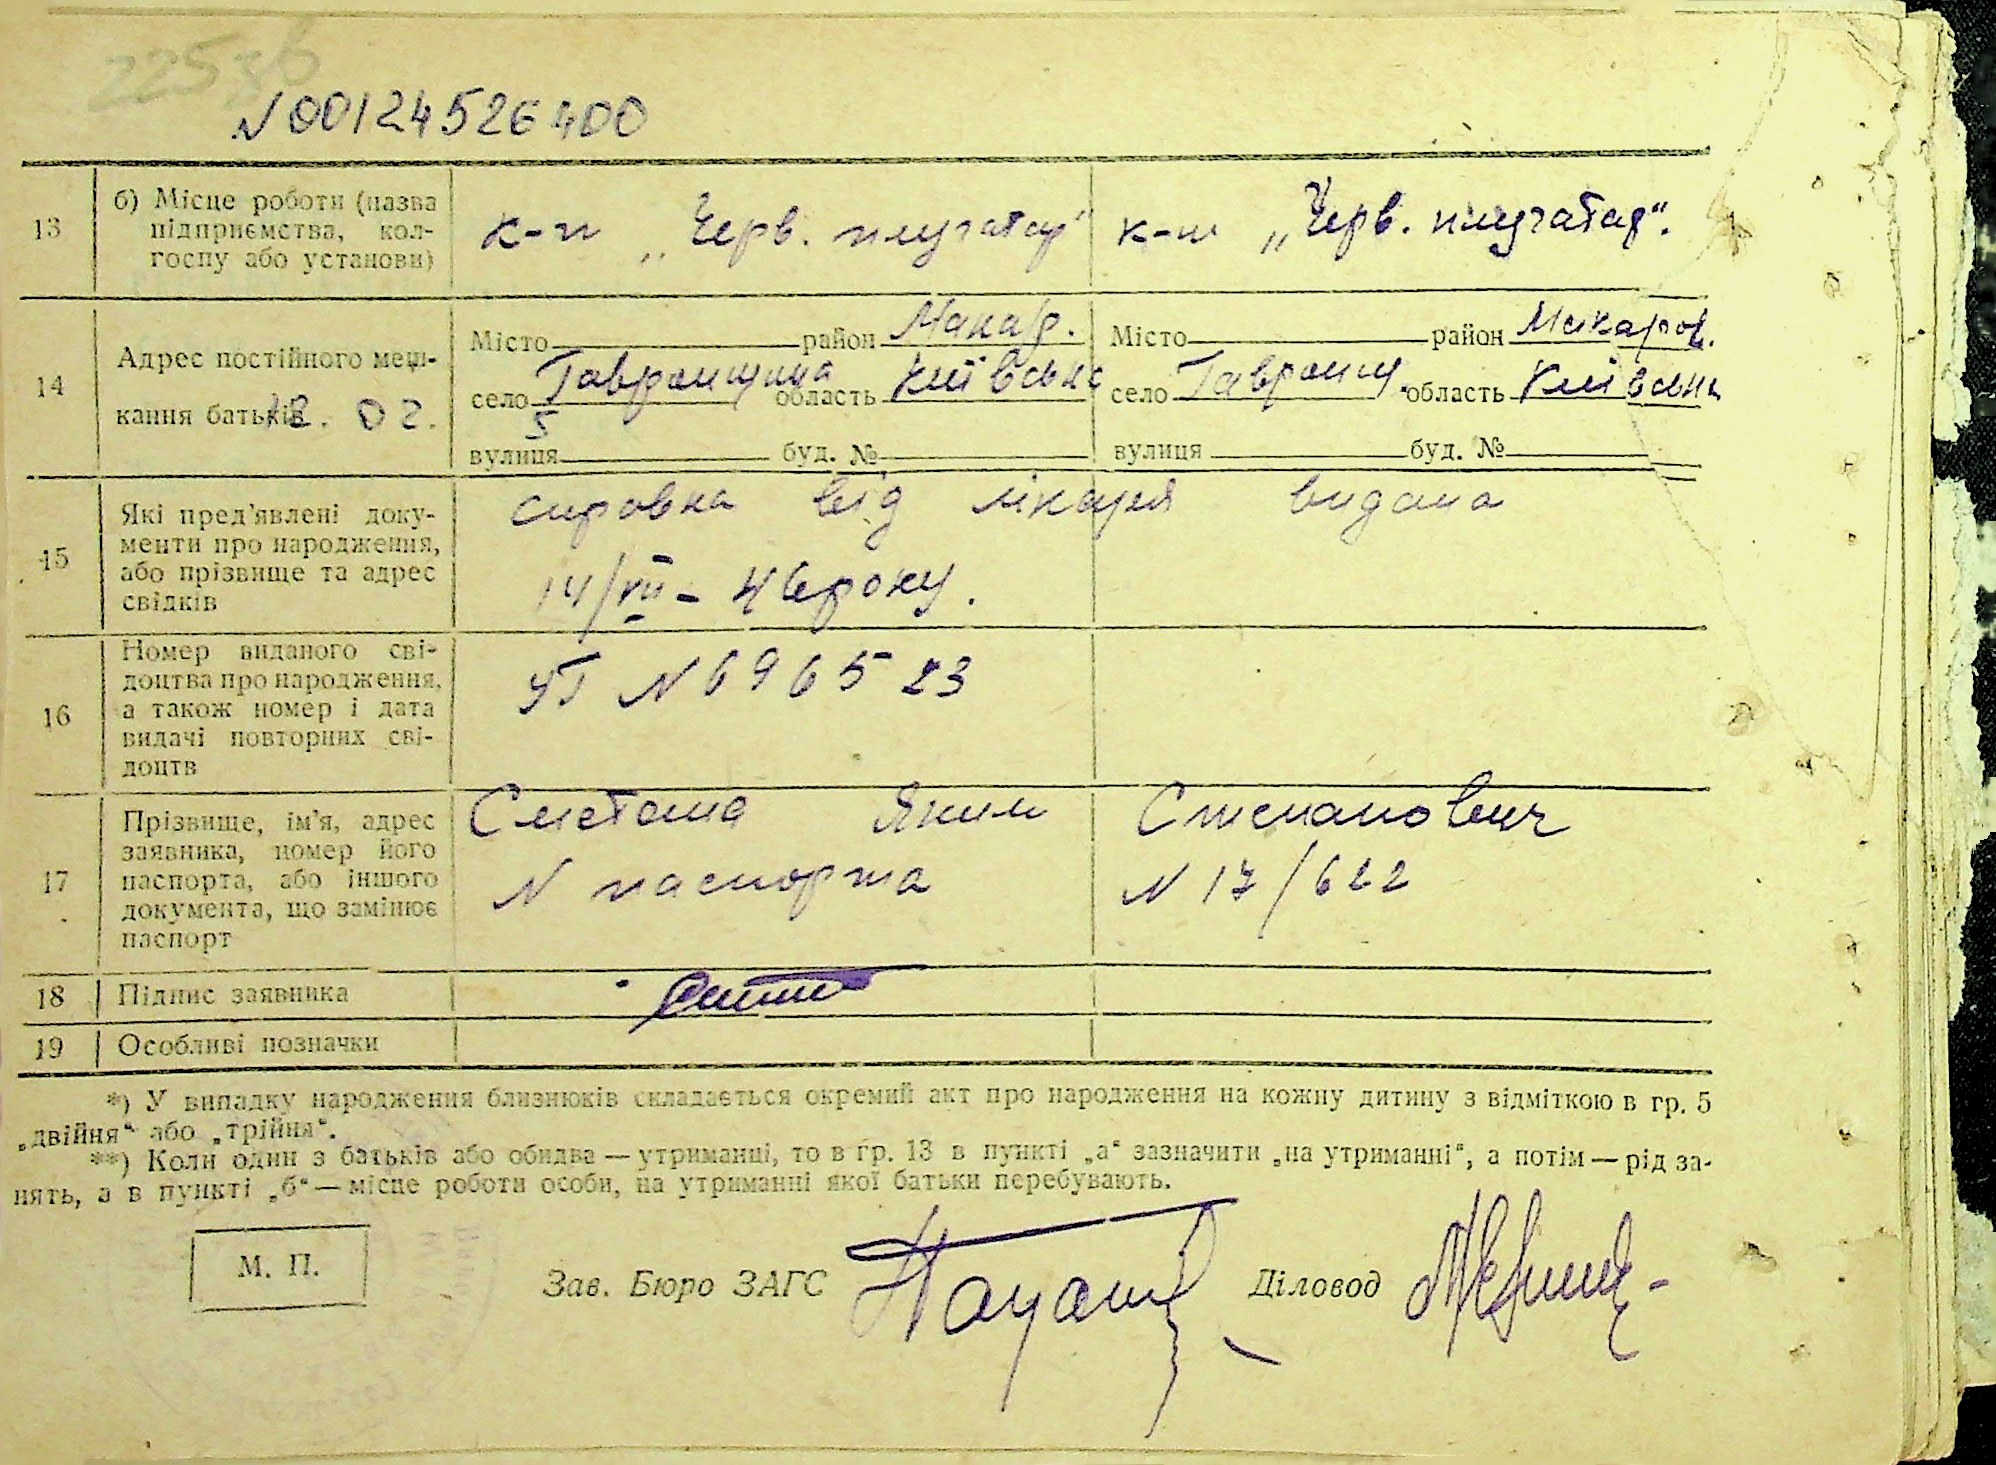 225зв
N 00124526400
13
б) Місце роботи (назва
підприємства, кол-
госпу або установи)
к-п „Черв. плугатар“
к-п „Черв. плугатар“.
14
Адрес постійного меш-
кання батьків
12. 02.
Місто район Макар.
село Гавронщина область Київська
5
вулиця буд. №
Місто район Макаров.
село Гавронщ. область Київська
вулиця буд. №
15
Які пред’явлені доку-
менти про народження,
або прізвище та адрес
свідків
справка від лікаря видана
14/VII - 46 року.
16
Номер виданого сві-
доцтва про народження,
а також номер і дата
видачі повторних сві-
доцтв
УГ N 696523
17
Прізвище, ім’я, адрес
заявника, номер його
паспорта, або іншого
документа, що замінює
паспорт
Сметана Яким Степанович
N паспорта N 17/622
18
Підпис заявника
19
Особливі позначки
*) У випадку народження близнюків складається окремий акт про народження на кожну дитину з відміткою в гр. 5
„двійня“ або „трійня“.
**) Коли один з батьків або обидва — утриманці, то в гр. 13 в пункті „а“ зазначити „на утриманні“, а потім — рід за-
нять, а в пункті „б“ — місце роботи особи, на утриманні якої батьки перебувають.
М. П.
Зав. Бюро ЗАГС
Діловод